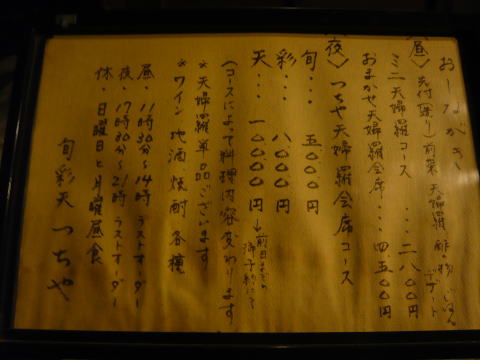 おしながき
〈昼〉 先付(造り) 前菜 天婦羅 酢の物 ごはん デザート
ミニ天婦羅コース ・・・二八〇〇円
おまかせ天婦羅会席・・・四、五〇〇円
〈夜〉 つちや天婦羅会席コース
旬・・・ 五〇〇〇円
彩・・・ 八〇〇〇円
天・・・ 一〇〇〇〇円
前日までの
御予約にて
(コースによって料理内容変わります)
※天婦羅単品ございます
※ワイン 地酒 焼酎 各種
昼・11時30分〜14時 ラストオーダー
夜・17時30分〜21時 ラストオーダー
休・日曜日と月曜昼食
旬彩天 つちや